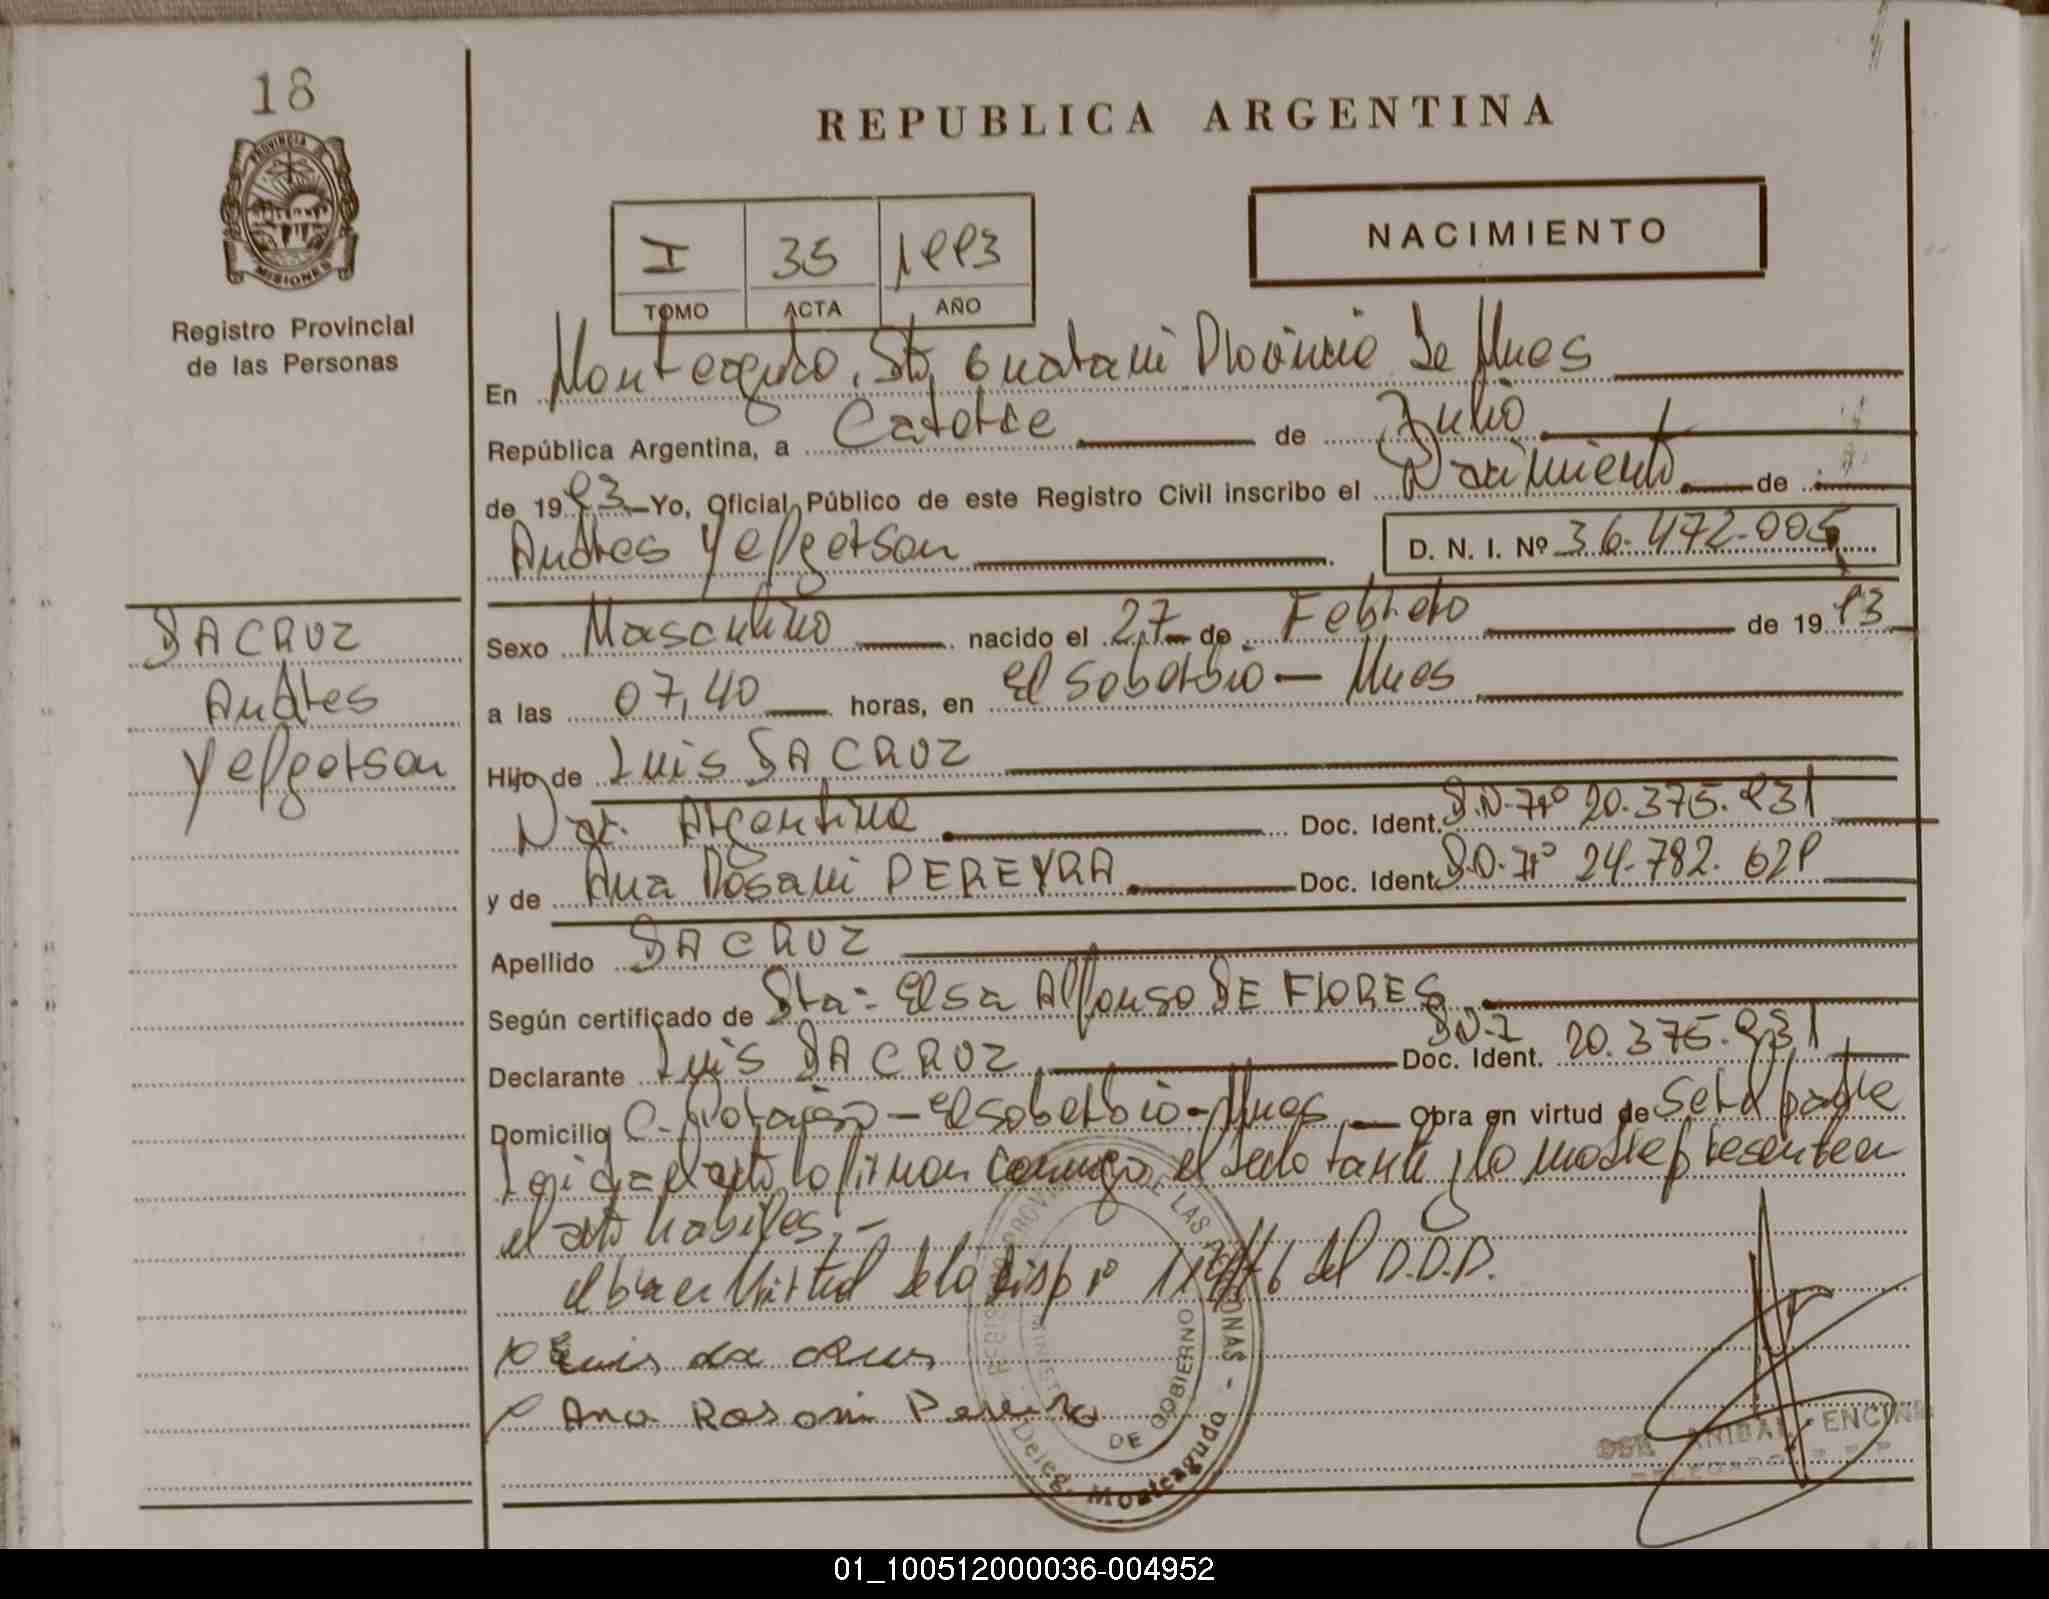 18
PROVINCIA
MISIONES
Registro Provincial
de las Personas
REPUBLICA ARGENTINA
NACIMIENTO
I 35 1993
TOMO ACTA AÑO
En Monteagudo, Dto, Guarani Provincia de Mnes
República Argentina, a Catorce de Julio
de 1993 Yo, Oficial Público de este Registro Civil inscribo el Nacimiento de
Andres Yefgerson D. N. I. Nº 36.472.005
DA CRUZ
Andres
Yefgerson
Sexo Masculino nacido el 27 de Febrero de 1993
a las 07,40 horas, en El Soberbio - Mnes
Hijo de Luis DA CRUZ
Nac. Argentina Doc. Ident. D.N.I Nº 20.375.931
y de Ana Rosani PEREYRA Doc. Ident. Nº 24.782.629
Apellido DA CRUZ
Según certificado de Sta: Elsa Alfonso DE FLORES
Declarante Luis DA CRUZ Doc. Ident. D.N.I 20.375.931
Domicilio El Soberbio - Mnes Obra en virtud de ser el padre
el acto lo firman conmigo el declarante y la madre presente en
el acto habiles.-
obra en virtud de la Disp nº del D.D.D.
Luis da Crus
Ana Rosani Pereira
REGISTRO PROVINCIAL DE LAS PERSONAS
MINISTERIO DE GOBIERNO
Deleg. Monteagudo
ANIBAL ENCINA
01_100512000036-004952